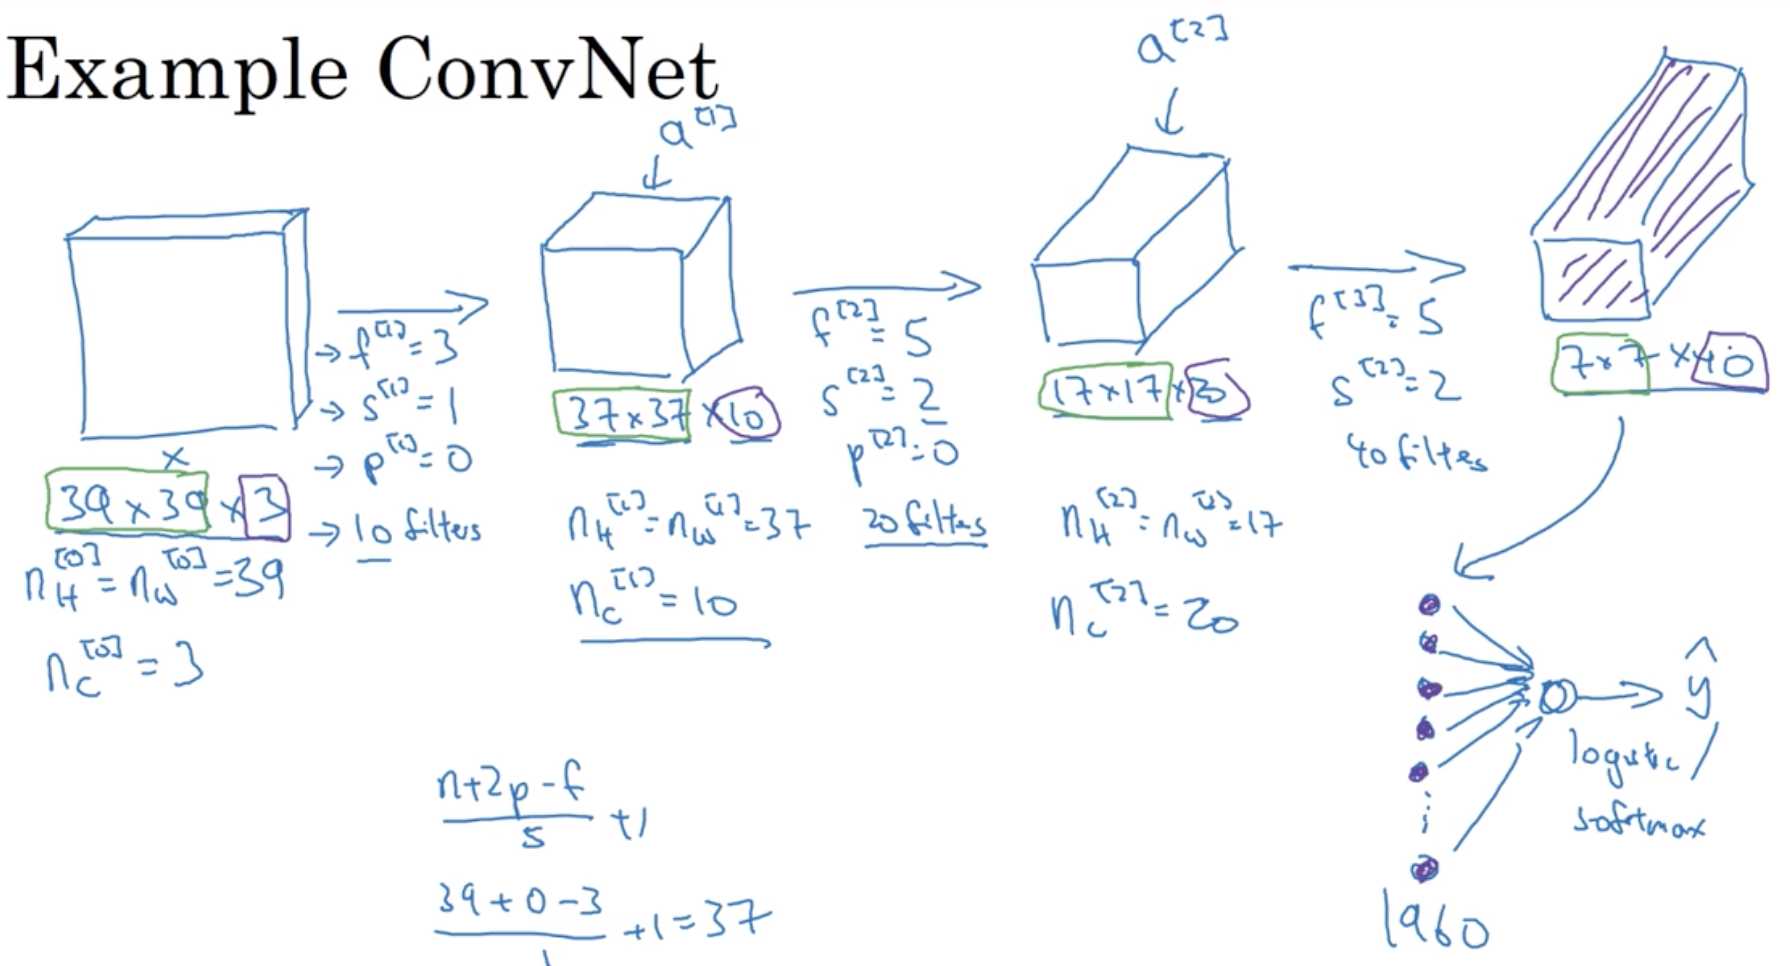 Example ConvNet
a^[1]
a^[2]
39 x 39 x 3
n_H^[0] = n_W^[0] = 39
n_C^[0] = 3
→ f^[1] = 3
→ s^[1] = 1
→ p^[1] = 0
→ 10 filters
37 x 37 x 10
n_H^[1] = n_W^[1] = 37
n_C^[1] = 10
f^[2] = 5
s^[2] = 2
p^[2] = 0
20 filters
17 x 17 x 20
n_H^[2] = n_W^[2] = 17
n_C^[2] = 20
f^[3] = 5
s^[2] = 2
40 filters
7 x 7 x 40
ŷ
logistic /
softmax
1960
(n+2p-f)/s +1
(39+0-3)/1 +1 = 37